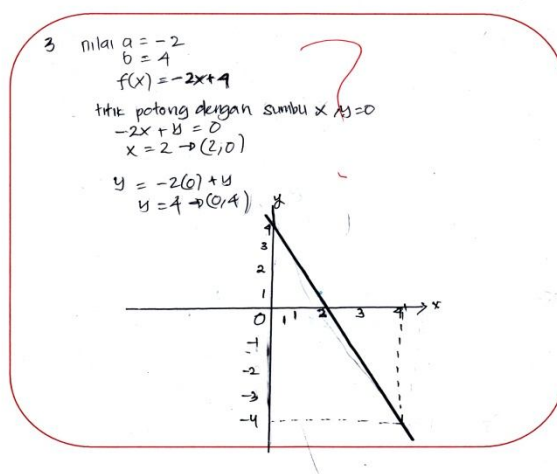 3 nilai a = -2
b = 4
f(x) = -2x+4
titik potong dengan sumbu x, y=0
-2x + y = 0
x = 2 → (2,0)
y = -2(0) + y
y = 4 → (0,4)
?
y
4
3
2
1
0 1 1 2 3 4 x
-1
-2
-3
-4